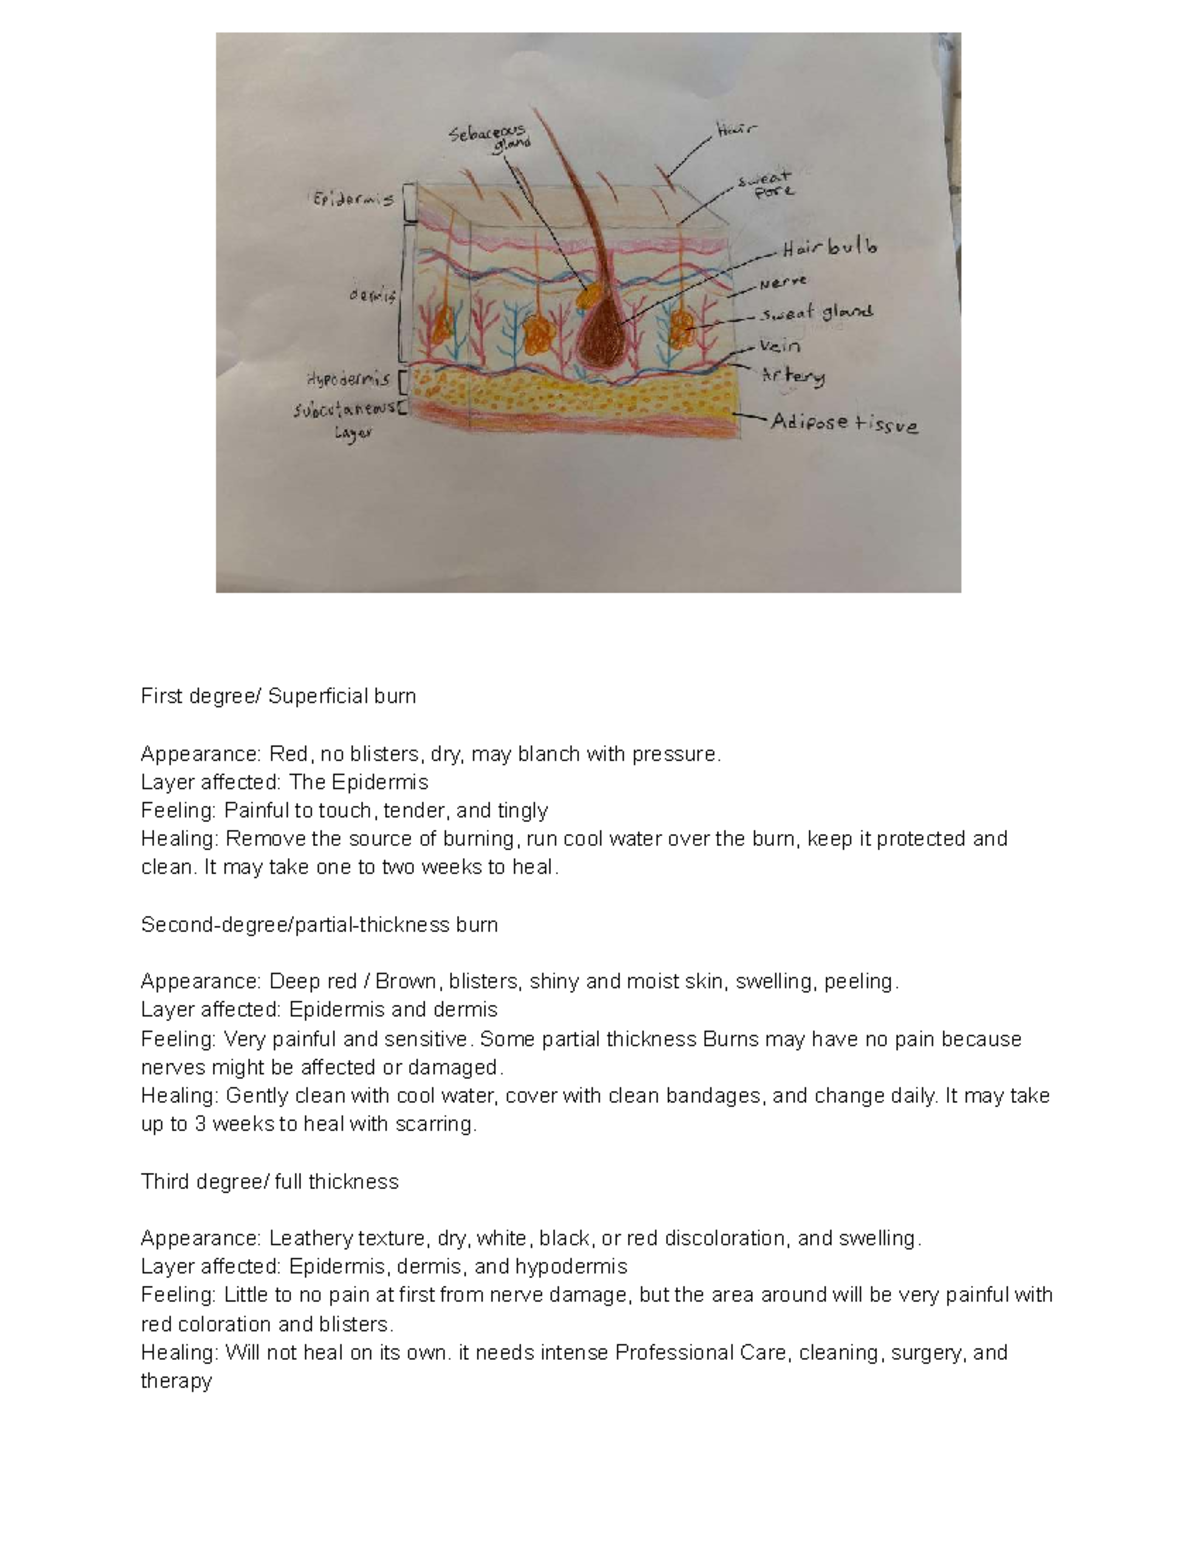 Sebaceous
gland
Hair
Sweat
Pore
Epidermis
Hair bulb
Nerve
dermis
Sweat gland
Vein
Hypodermis
Artery
Subcutaneous
Layer
Adipose tissue
First degree/ Superficial burn
Appearance: Red, no blisters, dry, may blanch with pressure.
Layer affected: The Epidermis
Feeling: Painful to touch, tender, and tingly
Healing: Remove the source of burning, run cool water over the burn, keep it protected and
clean. It may take one to two weeks to heal.
Second-degree/partial-thickness burn
Appearance: Deep red / Brown, blisters, shiny and moist skin, swelling, peeling.
Layer affected: Epidermis and dermis
Feeling: Very painful and sensitive. Some partial thickness Burns may have no pain because
nerves might be affected or damaged.
Healing: Gently clean with cool water, cover with clean bandages, and change daily. It may take
up to 3 weeks to heal with scarring.
Third degree/ full thickness
Appearance: Leathery texture, dry, white, black, or red discoloration, and swelling.
Layer affected: Epidermis, dermis, and hypodermis
Feeling: Little to no pain at first from nerve damage, but the area around will be very painful with
red coloration and blisters.
Healing: Will not heal on its own. it needs intense Professional Care, cleaning, surgery, and
therapy